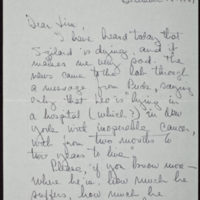 Dear Jim,
I have heard today that
Szilard is dying, and it
makes me very sad. The
news came to the lab through
a message from Buda, saying
only that Leo is dying in
a hospital (which?) in New
York with inoperable cancer,
with from two months to
two years to live.
Please, if you know more —
where he is, how much he
suffers, how much he